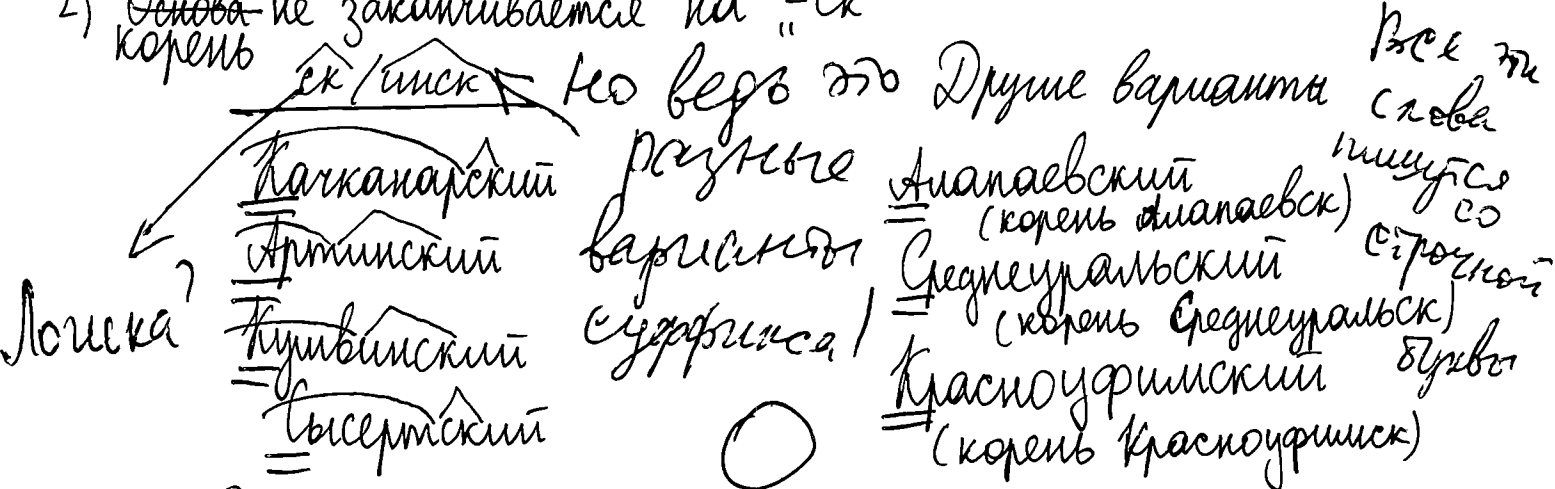 2) Основа не заканчивается на "-ск"
корень
ск/инск
Но ведь это
разные
варианты
суффикса!
Качканарский
Артинский
Кушвинский
Сысертский
Логика?
Другие варианты
Алапаевский
(корень Алапаевск)
Среднеуральский
(корень Среднеуральск)
Красноуфимский
(корень Красноуфимск)
Все эти
слова
пишутся
со
строчной
буквы